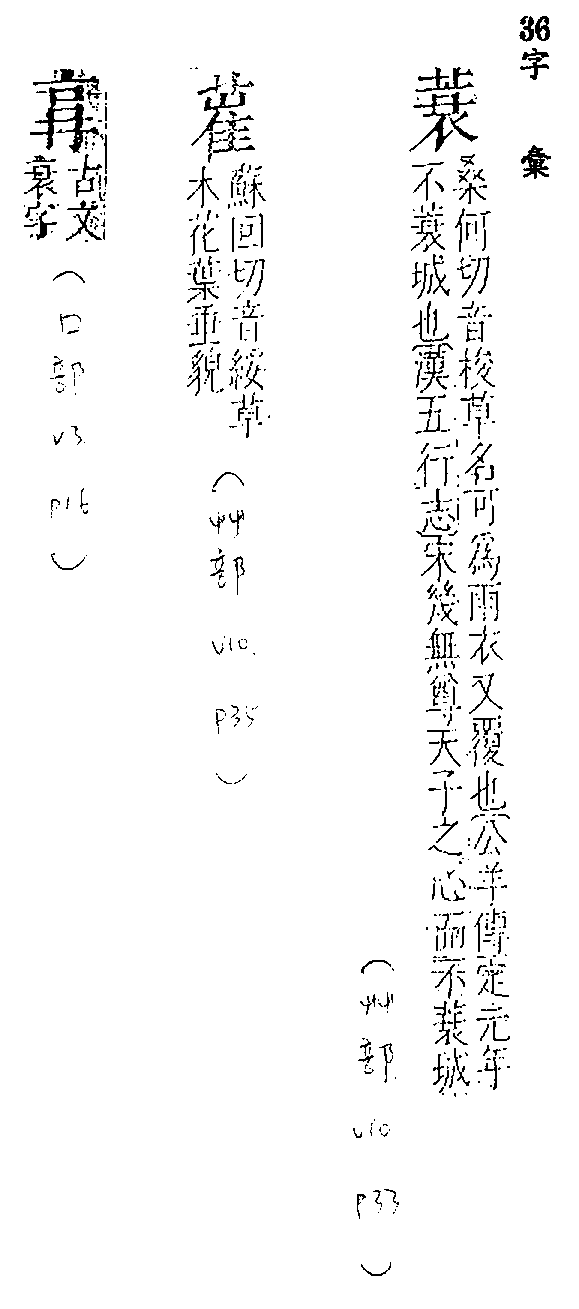 36字彙
蓑
桑何切音梭草名可爲雨衣又覆也公羊傳定元年
不蓑城也漢五行志宋幾無尊天子之心而不蓑城
(艸部 v10 p33)
蘇回切音綏草
木花葉垂貌
(艸部 v10. p35)
古文
衰字
(口部 v3 p16)